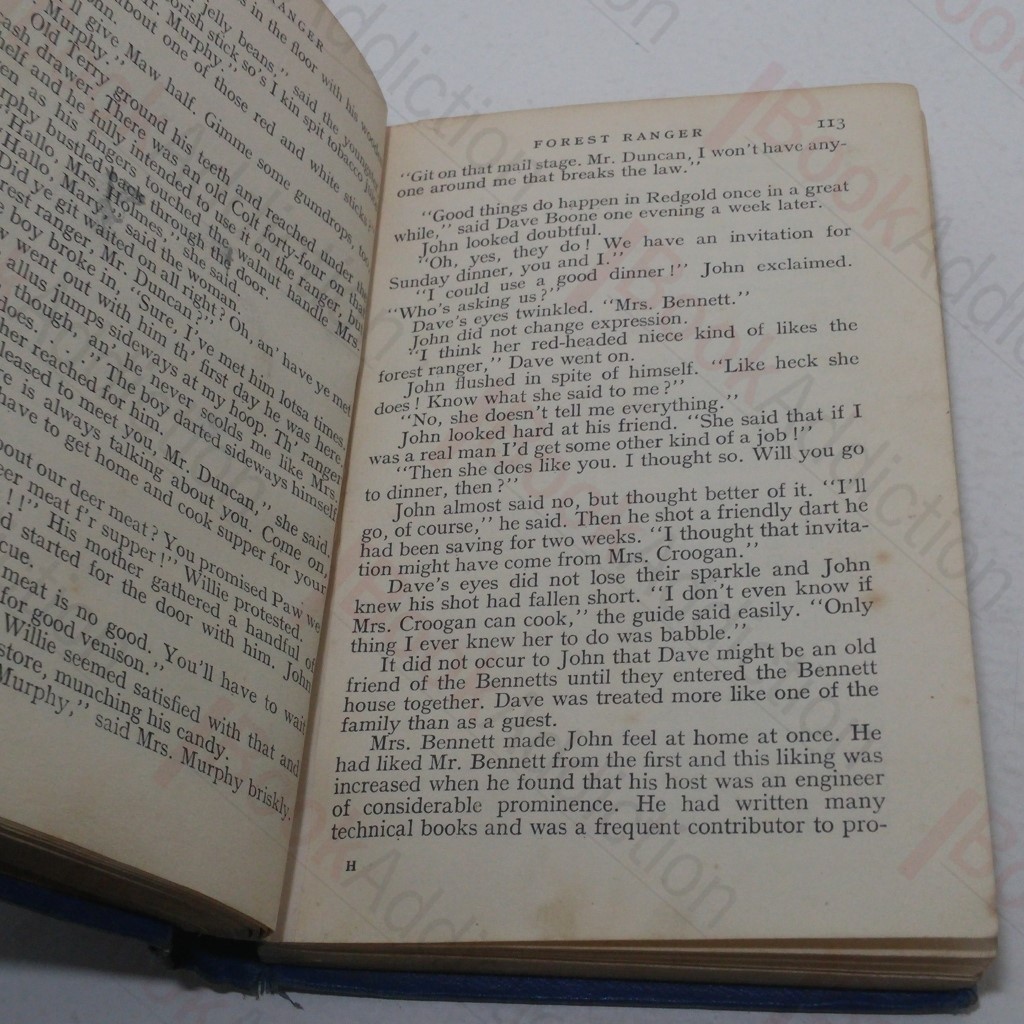 RANGER
jelly beans," said the youngster
in the floor with his wooden
orish stick so's I kin spit tobacco juice
Murphy."
about one of those red and white sticks?"
John.
I'll give Maw half. Gimme some gumdrops, too,
Murphy."
Old Terry ground his teeth and reached under the
cash drawer. There was an old Colt forty-four on that
shelf and he fully intended to use it on the ranger, but
as his fingers touched the walnut handle Mrs.
Murphy bustled back through the door.
"Hallo, Mrs. Holmes," she said.
"Hallo, Mary," said the woman.
"Did ye git waited on all right? Oh, an' have ye met
forest ranger, Mr. Duncan?"
boy broke in, "Sure, I've met him lotsa times.
went out with him th' first day he was here.
allus jumps sideways at my hoop. Th' ranger
though, an' he never scolds me like Mrs.
does. . . ." The boy darted sideways himself
her reached for him.
pleased to meet you, Mr. Duncan," she said.
is always talking about you. Come on,
have to get home and cook supper for your
about our deer meat? You promised Paw we
deer meat f'r supper!" Willie protested.
!!" His mother gathered a handful of
started for the door with him. John
rescue.
meat is no good. You'll have to wait
for good venison."
Willie seemed satisfied with that and
store, munching his candy.
Murphy," said Mrs. Murphy briskly.
FOREST RANGER 113
"Git on that mail stage. Mr. Duncan, I won't have any-
one around me that breaks the law."
"Good things do happen in Redgold once in a great
while," said Dave Boone one evening a week later.
John looked doubtful.
"Oh, yes, they do! We have an invitation for
Sunday dinner, you and I."
"I could use a good dinner!" John exclaimed.
"Who's asking us?"
Dave's eyes twinkled. "Mrs. Bennett."
John did not change expression.
"I think her red-headed niece kind of likes the
forest ranger," Dave went on.
John flushed in spite of himself. "Like heck she
does! Know what she said to me?"
"No, she doesn't tell me everything."
John looked hard at his friend. "She said that if I
was a real man I'd get some other kind of a job!"
"Then she does like you. I thought so. Will you go
to dinner, then?"
John almost said no, but thought better of it. "I'll
go, of course," he said. Then he shot a friendly dart he
had been saving for two weeks. "I thought that invita-
tion might have come from Mrs. Croogan."
Dave's eyes did not lose their sparkle and John
knew his shot had fallen short. "I don't even know if
Mrs. Croogan can cook," the guide said easily. "Only
thing I ever knew her to do was babble."
It did not occur to John that Dave might be an old
friend of the Bennetts until they entered the Bennett
house together. Dave was treated more like one of the
family than as a guest.
Mrs. Bennett made John feel at home at once. He
had liked Mr. Bennett from the first and this liking was
increased when he found that his host was an engineer
of considerable prominence. He had written many
technical books and was a frequent contributor to pro-
H
BookAddiction